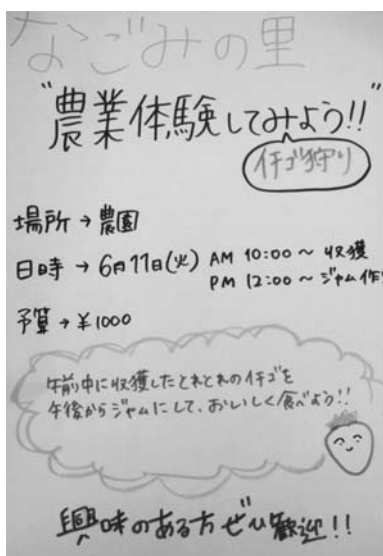 なごみの里
"農業体験してみよう!!"
イチゴ狩り
場所 → 農園
日時 → 6月11日(火) AM 10:00 ~ 収獲
PM 12:00 ~ ジャム作
予算 → ¥1000
午前中に収獲したとれとれのイチゴを
午後からジャムにして、おいしく食べよう!!
興味のある方ぜひ歓迎!!